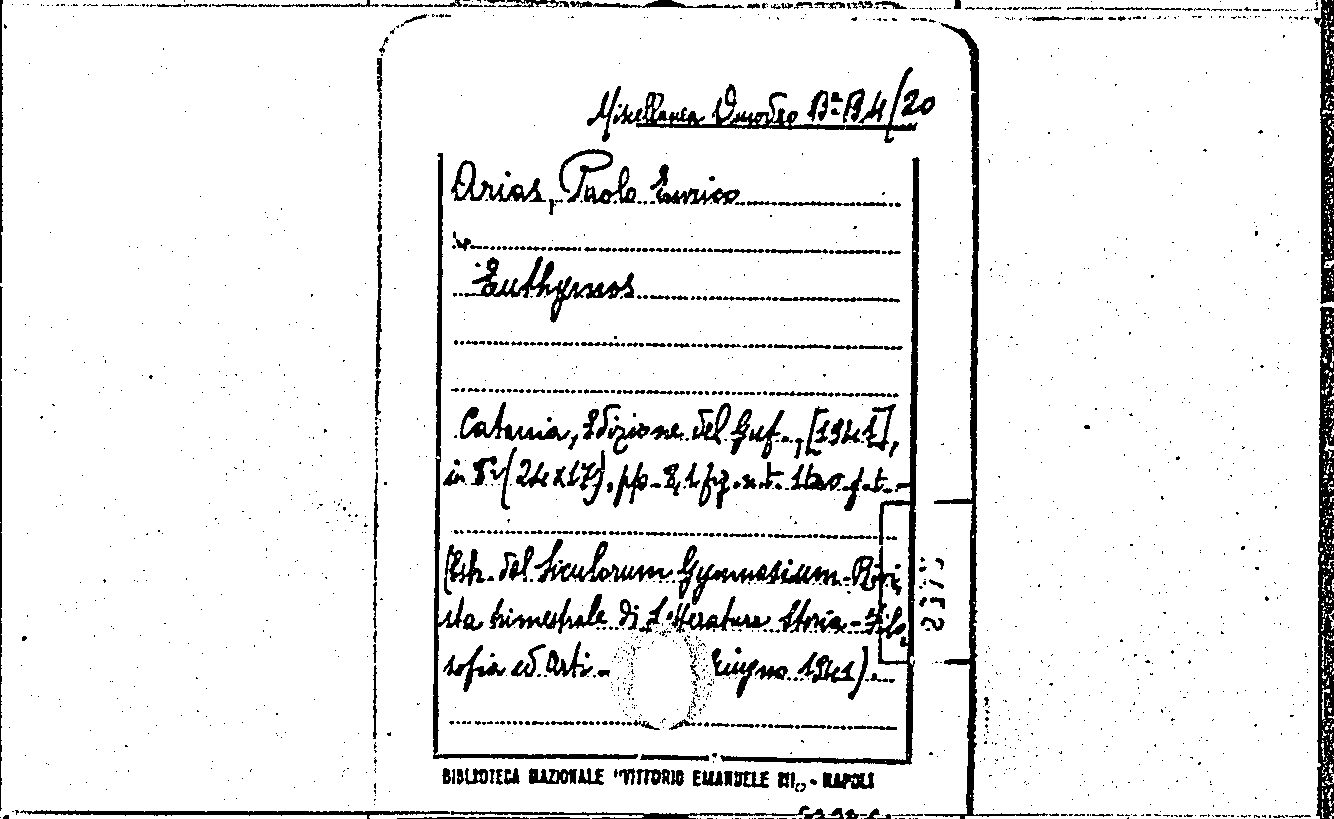 Miscellanea Omodeo Bª B 4/20
Arias, Paolo Enrico
Euthymos
Catania, Edizione del Guf., [1941],
in 8º (24x17), pp. 8, 1 fig. n.t. 1 tav. f.t.-
(Estr. del Siculorum Gymnasium - Rivi
sta trimestrale di Letteratura Storia - Filo
sofia ed Arti - Giugno 1941).
BIBLIOTECA NAZIONALE "VITTORIO EMANUELE III„ - NAPOLI